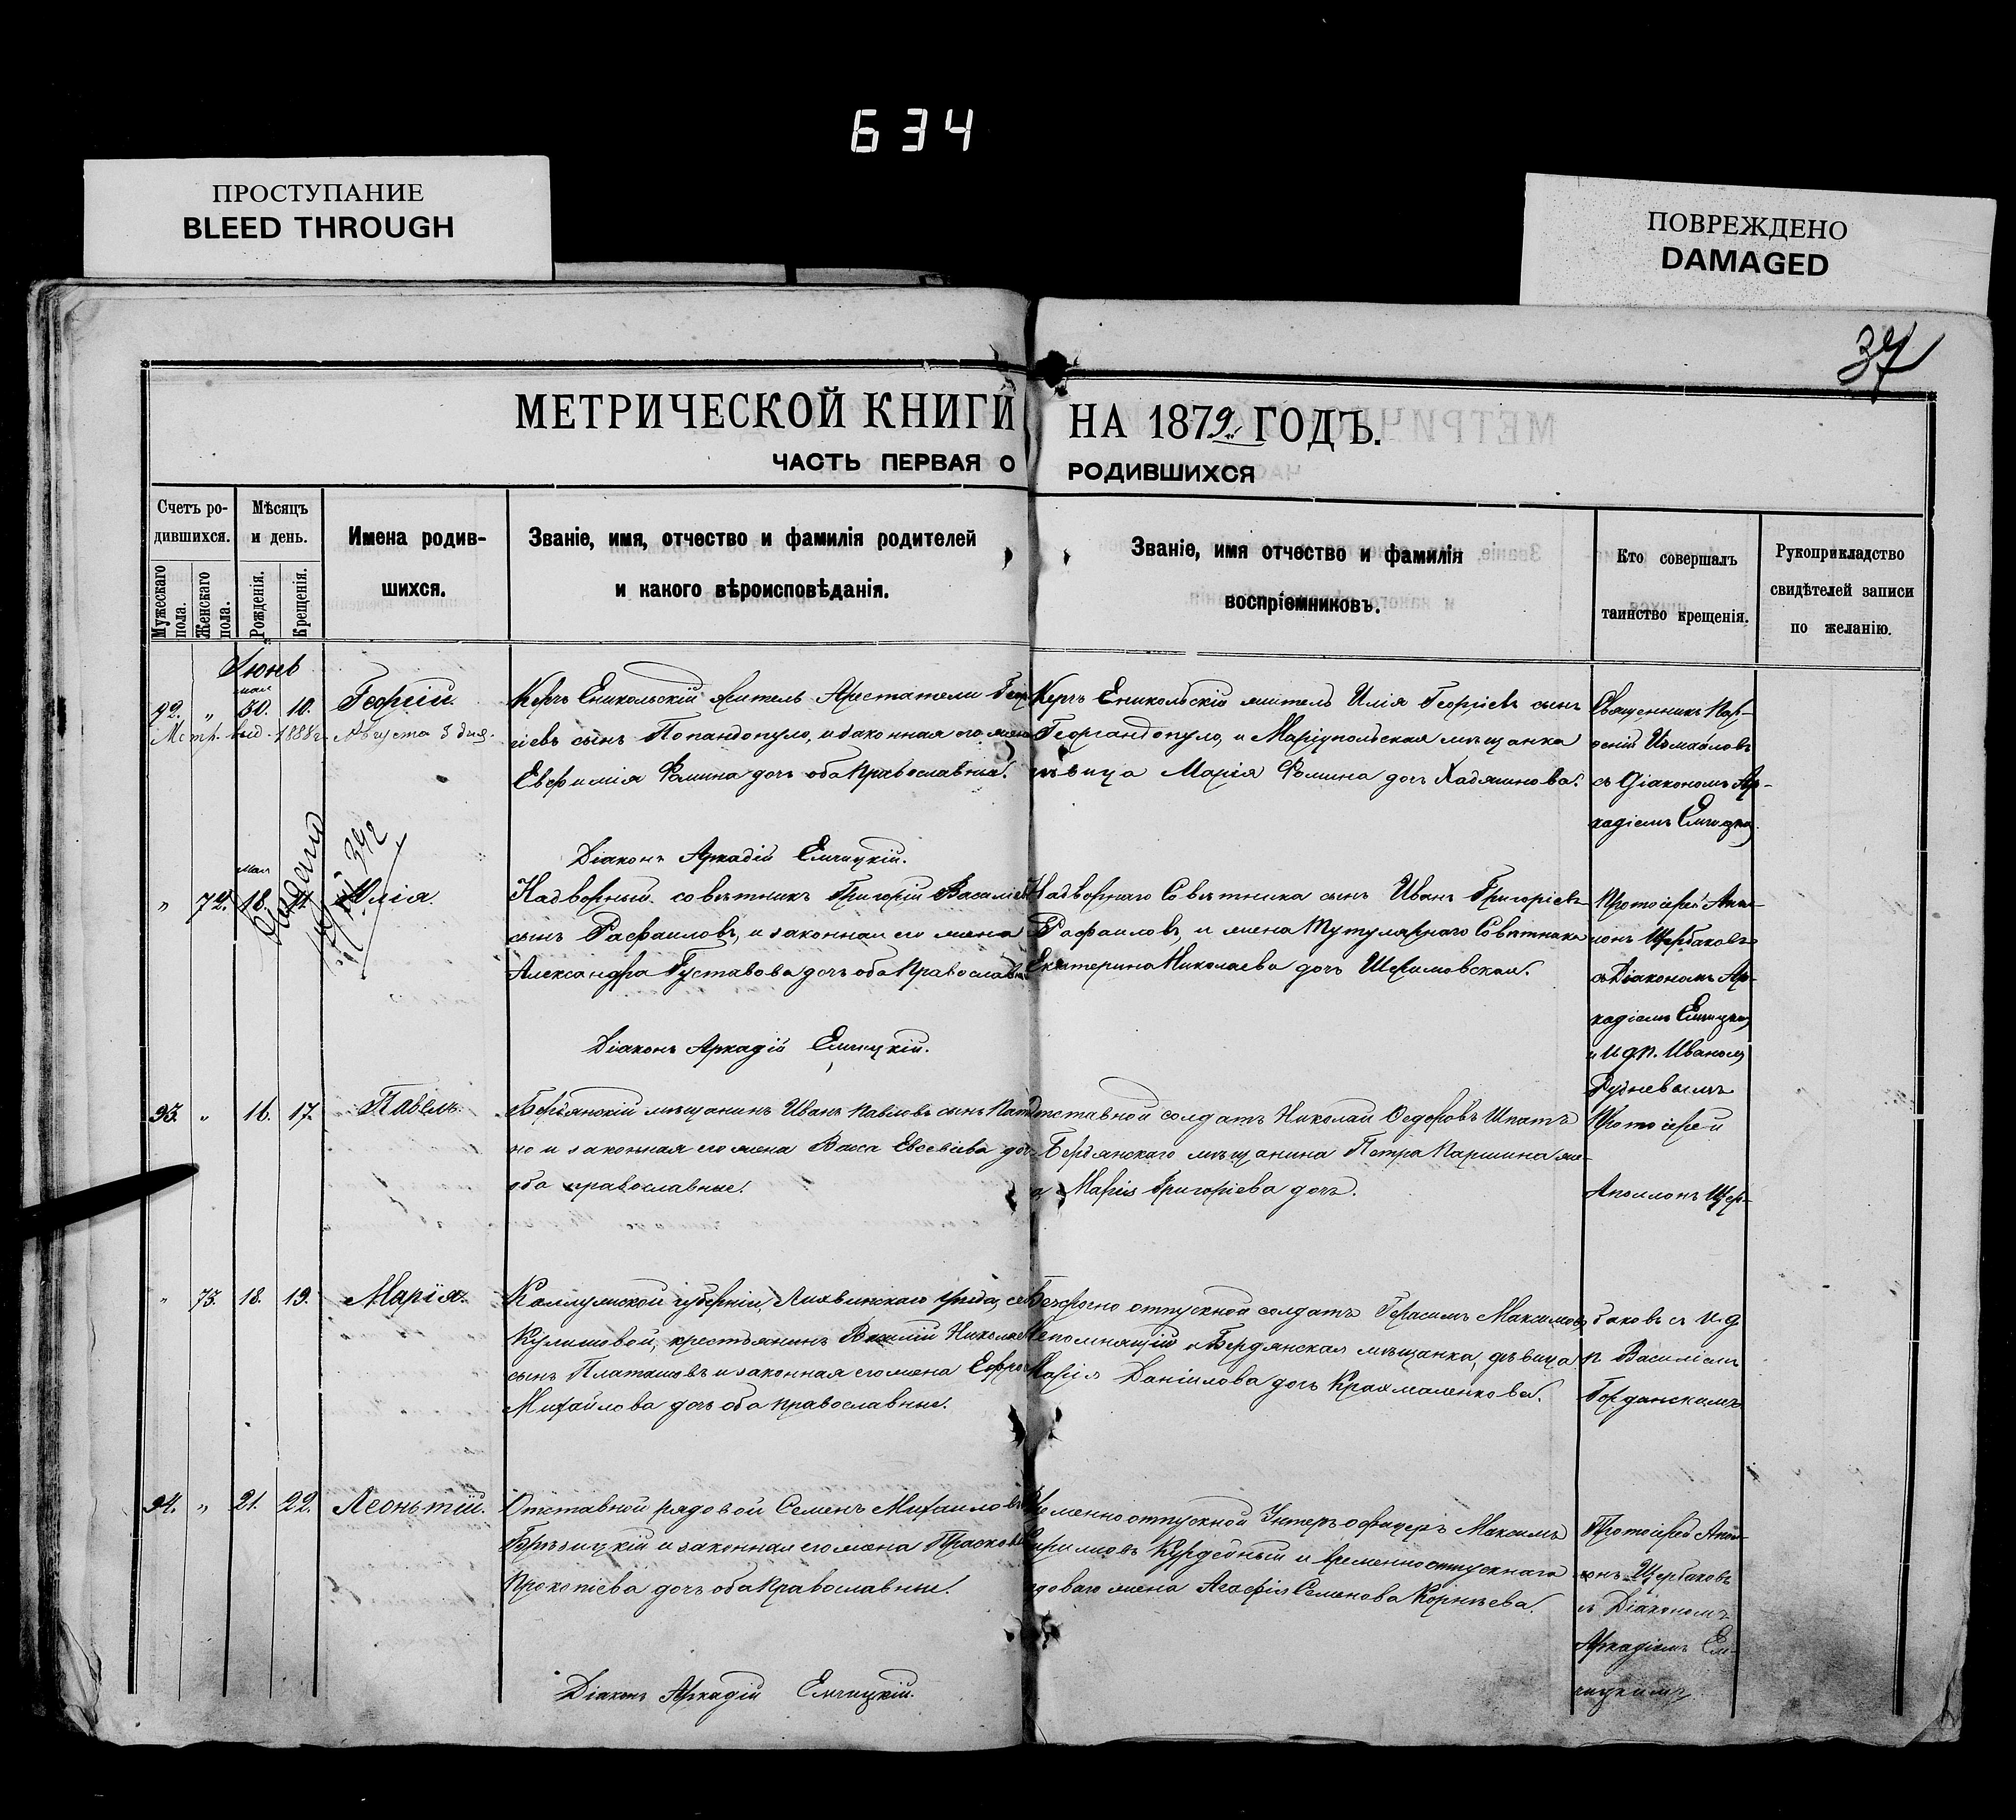 634
ПРОСТУПАНИЕ
BLEED THROUGH
ПОВРЕЖДЕНО
DAMAGED
37
МЕТРИЧЕСКОЙ КНИГИ НА 1879 ГОДЪ.
ЧАСТЬ ПЕРВАЯ О РОДИВШИХСЯ
Счетъ ро-
дившихся.
Мужескаго пола.
Женскаго пола.
Мѣсяцъ
и день.
Рожденія.
Крещенія.
Имена родив-
шихся.
Званіе, имя, отчество и фамилія родителей
и какого вѣроисповѣданія.
Званіе, имя отчество и фамилія
воспріемниковъ.
Кто совершалъ
таинство крещенія.
Рукоприкладство
свидѣтелей записи
по желанію.
Іюнь
92. " мая 30. 10. Георгій.
Метр. выд. 1888 г. Августа 3 дня.
Керчь Еникольскій житель Аристатели Геор-
гіевъ сынъ Попандопуло, и законная его жена
Евфимія Фомина дочь оба православные.
Керчь Еникольскій житель Илія Георгіевъ сынъ
Георгандопуло, и Маріупольская мѣщанка
дѣвица Марія Фомина дочь Хаджинова.
Священникъ
съ Діакономъ Ар-
кадіемъ
Діаконъ Аркадій Емчицкій.
" 72. мая 18. Юлія.
Выдано
Надворный совѣтникъ Григорій Василіев
сынъ Рафаиловъ, и законная его жена
Александра Густавова дочь оба православн
Надворнаго Совѣтника сынъ Иванъ Григоріевъ
Рафаиловъ, и жена Тутулярнаго Совѣтника
Екатерина Николаева дочь
Протоіерей Апол-
лонъ Щербаковъ
съ Діакономъ Ар-
кадіемъ
и И д п. Иваномъ
Рудневымъ
Діаконъ Аркадій Емчицкій.
93. " 16. 17. Павелъ.
Бердянскій мѣщанинъ Иванъ Павловъ сынъ
но и законная его жена Васса Евсевіева доч
оба православные.
Отставной солдатъ Николай Ѳедоровъ
Бердянскаго мѣщанина Петра Паршина же-
а Марія Григоріева дочь.
Протоіерей
Аполлонъ Щер-
" 73. 18. 19. Марія.
Каллужской губерніи, Лихвинскаго уѣзда, сел
крестьянинъ Василій Николаев
сынъ Платашовъ и законная его жена
Михайлова дочь оба православные.
Безсрочно отпускной солдатъ Герасимъ Максимовъ
Непомнящій и Бердянская мѣщанка, дѣвица
Марія Даніилова дочь Крахмаленкова.
баковъ съ и д
п Василіемъ
94. " 21. 22. Леонтій.
Отставной рядовой Семенъ Михаиловъ
и законная его жена
Прокопіева дочь оба православные.
Временно отпускной Унтеръ офицеръ Максимъ
и временно отпускнаго
рядоваго жена Агафія Семенова Корнѣева.
Протоіерей Апол-
лонъ Щербаковъ
съ Діакономъ
Аркадіемъ Ем-
чицкимъ
Діаконъ Аркадій Емчицкій.